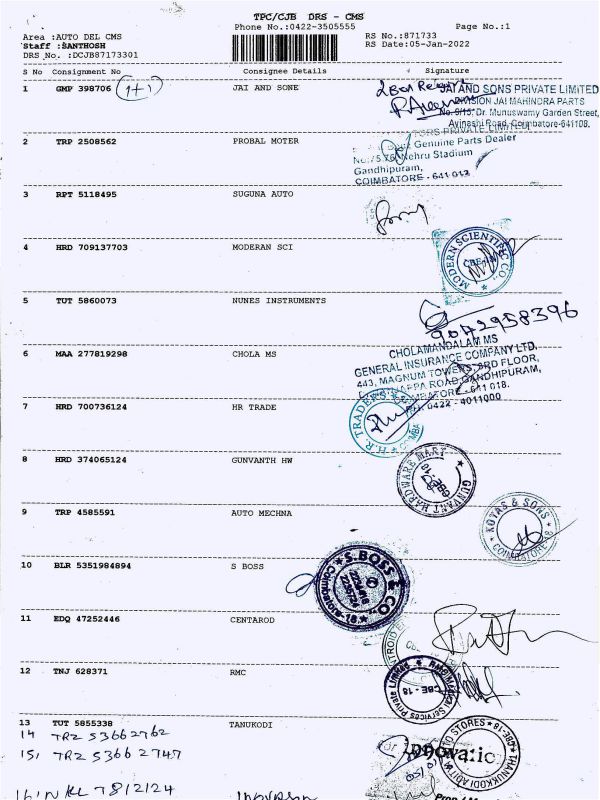 TPC/CJB DRS - CMS
Phone No.:0422-3505555 Page No.:1
Area :AUTO DEL CMS RS No.:871733
Staff :SANTHOSH RS Date:05-Jan-2022
DRS No. :DCJB87173301
S No Consignment No Consignee Details Signature
1 GMP 398706 (1+1) JAI AND SONE
JAI AND SONS PRIVATE LIMITED
DIVISION JAI MAHINDRA PARTS
No.9/15, Dr. Munuswamy Garden Street,
Avinashi Road, Coimbatore-641108.
2 TRP 2508562 PROBAL MOTER
TORS PRIVATE LIMITED
Genuine Parts Dealer
Nehru Stadium
Gandhipuram,
COIMBATORE - 641 012
3 RPT 5118495 SUGUNA AUTO
4 HRD 709137703 MODERAN SCI
MODERN SCIENTIFIC CO.
5 TUT 5860073 NUNES INSTRUMENTS
9042958396
6 MAA 277819298 CHOLA MS
CHOLAMANDALAM MS
GENERAL INSURANCE COMPANY LTD,
443, MAGNUM TOWERS, 3RD FLOOR,
ROAD, GANDHIPURAM,
COIMBATORE - 641 018.
PH: 0422 - 4011000
7 HRD 700736124 HR TRADE
H. R. TRADERS
8 HRD 374065124 GUNVANTH HW
GUNVANT HARDWARE MART
9 TRP 4585591 AUTO MECHNA
KOYAS & SONS
10 BLR 5351984894 S BOSS
S. BOSS & CO.
Coimbatore-18
11 EDQ 47252446 CENTAROD
12 TNJ 628371 RMC
Services Private Limited
CBE - 18
13 TUT 5855338 TANUKODI
THANUKODI STORES CBE-18
14 TRZ 53662762
15, TRZ 5366 2747
For Innovatic
16, NKL 7812124